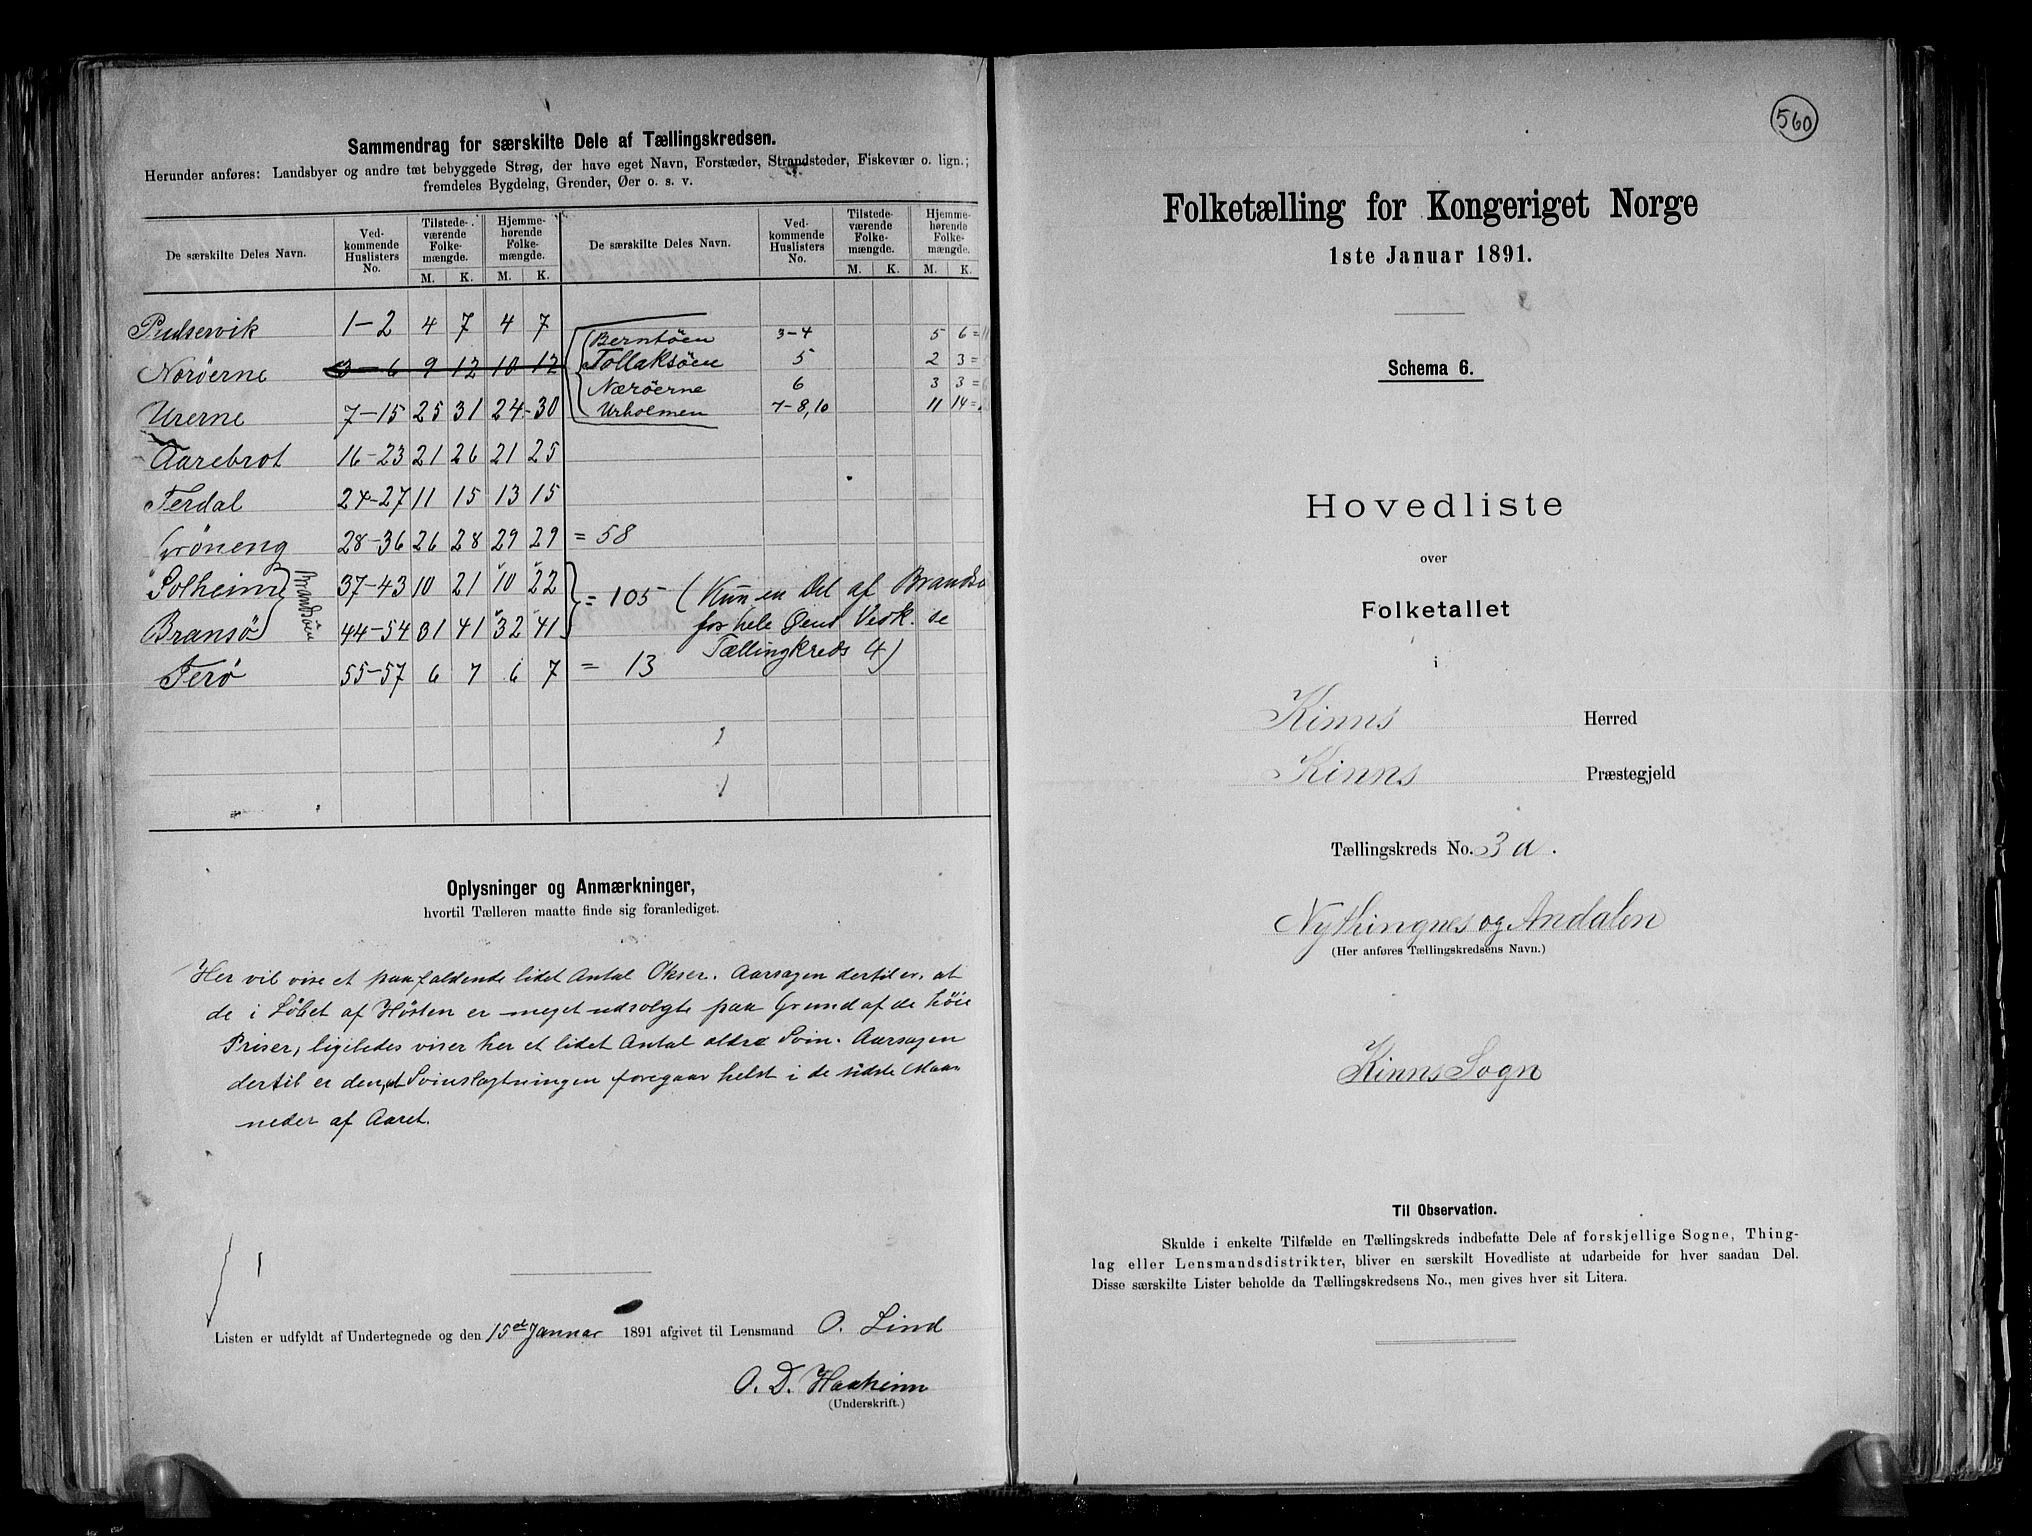 Sammendrag for særskilte Dele af Tællingskredsen.
Herunder anføres: Landsbyer og andre tæt bebyggede Strøg, der have eget Navn, Forstæder, Strandsteder, Fiskevær o. lign.;
fremdeles Bygdelag, Grender, Øer o. s. v.
De særskilte Deles Navn. Ved-kommende Huslisters No. Tilstede-værende Folke-mængde. M. K. Hjemme-hørende Folke-mængde. M. K. De særskilte Deles Navn. Ved-kommende Huslisters No. Tilstede-værende Folke-mængde. M. K. Hjemme-hørende Folke-mængde. M. K.
1-2 4 7 4 7
Berntöen 3-4 5 6 =
Noröerne 3-6 9 12 10 12 Tollaksöen 5 2 3 =
Nærøerne 6 3 3 =
Urerne 7-15 25 31 24-30 Urholmen 7-8,10 11 14 =
Aarebrot 16-23 21 26 21 25
Terdal 24-27 11 15 13 15
Gröneng 28-36 26 28 29 29 = 58
Solheim 37-43 10 21 10 22
Brandsöen
= 105 (Kun en Del af Brandsø
Bransø 44-54 31 41 32 41 for hele Øens Vedk. se
Tællingkreds 4)
Terö 55-57 6 7 6 7 = 13
Oplysninger og Anmærkninger,
hvortil Tælleren maatte finde sig foranlediget.
Her vil vise et paafaldende lidet Antal Okser. Aarsagen dertil er, at
de i Løbet af Hösten er meget udsolgte paa Grund af de höie
Priser, ligeledes viser her et lidet Antal ældre Svin. Aarsagen
dertil er den, at Svinslagtningen foregaar helst i de sidste Maa-
neder af Aaret.
Listen er udfyldt af Undertegnede og den 15de Januar 1891 afgivet til Lensmand O. Lind
O. D. Haaheim
(Underskrift.)
560
Folketælling for Kongeriget Norge
1ste Januar 1891.
Schema 6.
Hovedliste
over
Folketallet
i
Kinns Herred
Kinns Præstegjeld
Tællingskreds No. 3 a.
Nythingnes og Andalen
(Her anføres Tællingskredsens Navn.)
Kinns Sogn
Til Observation.
Skulde i enkelte Tilfælde en Tællingskreds indbefatte Dele af forskjellige Sogne, Thing-
lag eller Lensmandsdistrikter, bliver en særskilt Hovedliste at udarbeide for hver saadan Del.
Disse særskilte Lister beholde da Tællingskredsens No., men gives hver sit Litera.